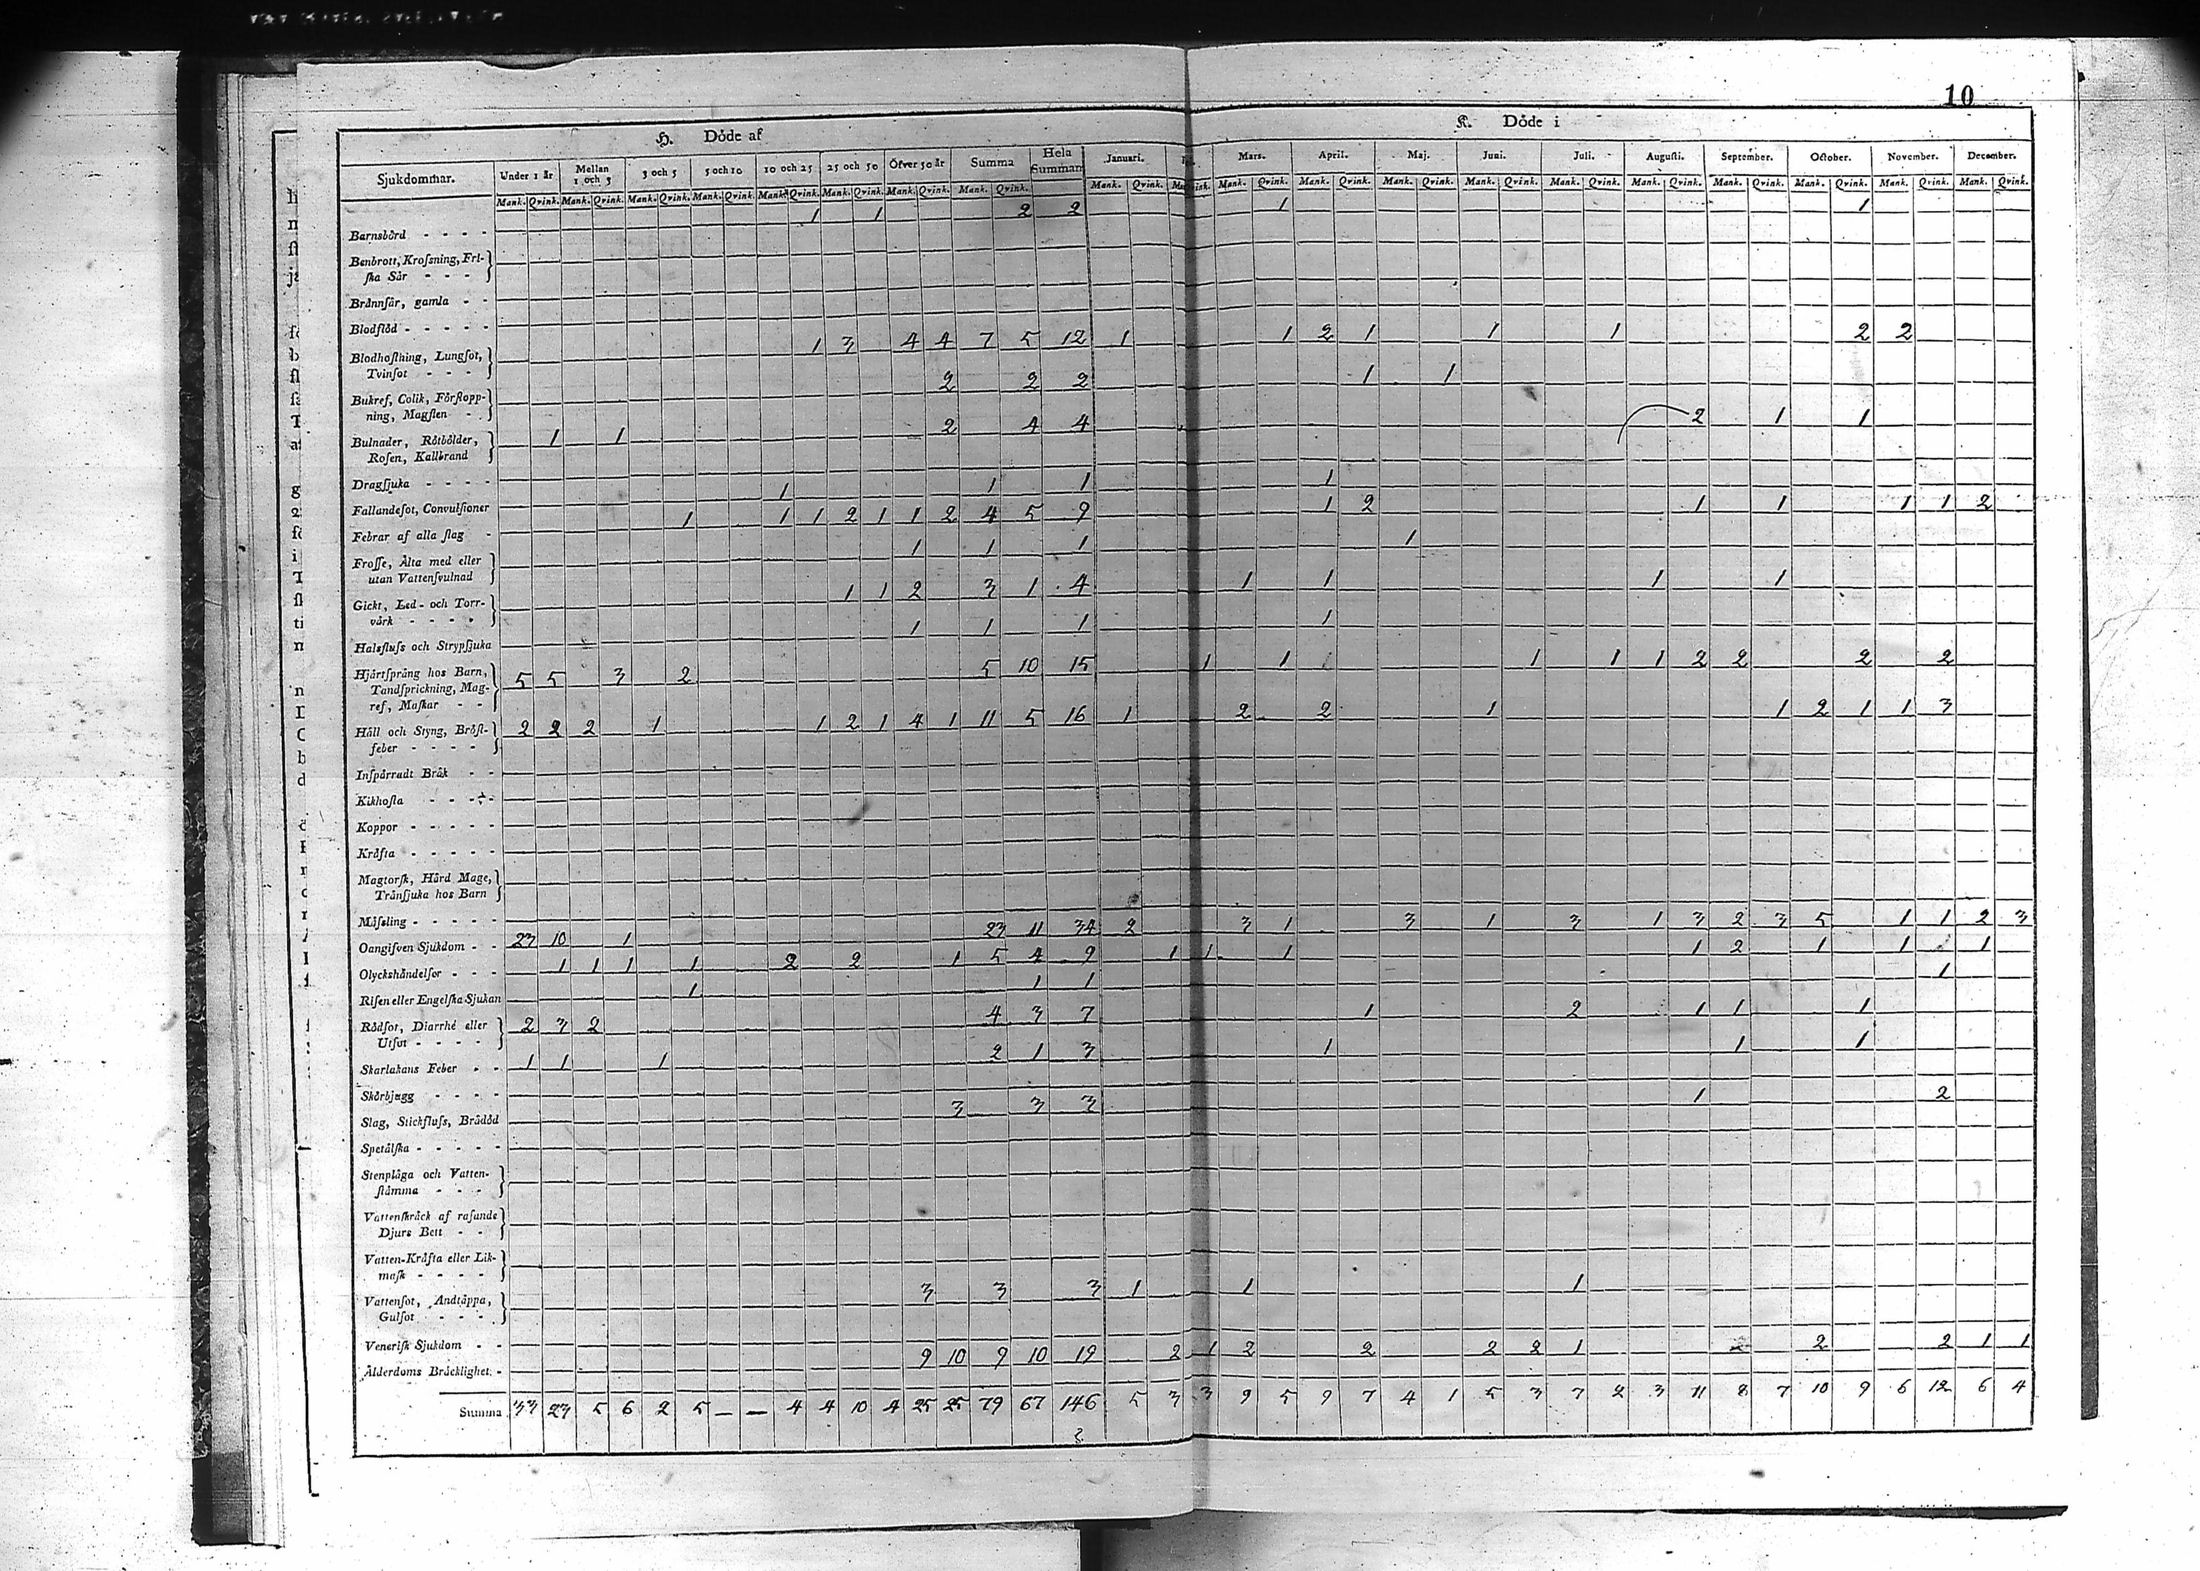 10
H. Döde af
K. Döde i
Sjukdommar. Under 1 år Mellan 1 och 3 3 och 5 5 och 10 10 och 25 25 och 50 Öfver 50 år Summa Hela Summan Januari. Mars. April. Maj. Juni. Juli. Augusti. September. October. November. December.
Mank. Qvink. Mank. Qvink. Mank. Qvink. Mank. Qvink. Mank. Qvink. Mank. Qvink. Mank. Qvink. Mank. Qvink. Mank. Qvink. Mank. Qvink. Mank. Qvink. Mank. Qvink. Mank. Qvink. Mank. Qvink. Mank. Qvink. Mank. Qvink. Mank. Qvink. Mank. Qvink. Mank. Qvink.
1 1 2 2 1 1
Barnsbörd - - - -
Benbrott, Krossning, Fri-
ska Sår - - -
Brännsår, gamla - -
Blodflöd - - - - -
1 3 4 4 7 5 12 1 1 2 1 1 1 2 2
Blodhostning, Lungsot,
Tvinsot - - -
2 2 2 1 1
Bukref, Colik, Förstopp-
ning, Magsten -
1 1 2 4 4 2 1 1
Bulnader, Rötbölder,
Rosen, Kallbrand
Dragsjuka - - - -
1 1 1 1
Fallandesot, Convulsioner
1 1 1 2 1 1 2 4 5 9 1 2 1 1 1 1 2
Febrar af alla slag -
1 1 1 1
Frosse, Älta med eller
utan Vattensvulnad
1 1 2 3 1 4 1 1 1 1
Gickt, Led- och Torr-
värk - - - -
1 1 1 1
Halsfluss och Strypsjuka
5 5 3 2 5 10 15 1 1 1 1 1 2 2 2 2
Hjärtsprång hos Barn,
Tandsprickning, Mag-
ref, Maskar - -
2 2 2 1 1 2 1 4 1 11 5 16 1 2 2 1 1 2 1 1 3
Håll och Styng, Bröst-
feber - - - -
Inspärradt Bråk - -
Kikhosta - - - -
Koppor - - - - -
Kräfta - - - - -
Magtorsk, Hård Mage,
Trånsjuka hos Barn
Mässling - - - - -
23 10 1 23 11 34 2 3 1 3 1 3 1 3 2 3 5 1 1 2 3
Oangifven Sjukdom - -
1 1 1 1 2 2 1 5 4 9 1 1 1 1 2 1 1 1
Olyckshändelser - - -
1 1 1 1
Risen eller Engelska Sjukan
2 3 2 4 3 7 1 2 1 1 1
Rödsot, Diarrhé eller
Utsot - - - -
1 1 1 2 1 3 1 1 1
Skarlakans Feber - -
Skörbjugg - - - -
3 3 3 1 2
Slag, Stickfluss, Brådöd
Spetälska - - - - -
Stenplåga och Vatten-
stämma - - -
Vattenskräck af rasande
Djurs Bett - -
Vatten-Kräfta eller Lik-
mask - - - -
3 3 3 1 1 1
Vattensot, Andtäppa,
Gulsot - - -
Venerisk Sjukdom - -
9 10 9 10 19 2 1 2 2 2 2 1 2 2 2 1 1
Ålderdoms Bräcklighet. -
Summa 33 23 5 6 2 5 — — 4 4 10 4 25 25 79 67 146 5 3 3 9 5 9 7 4 1 5 3 7 2 3 11 8 7 10 9 6 12 6 4